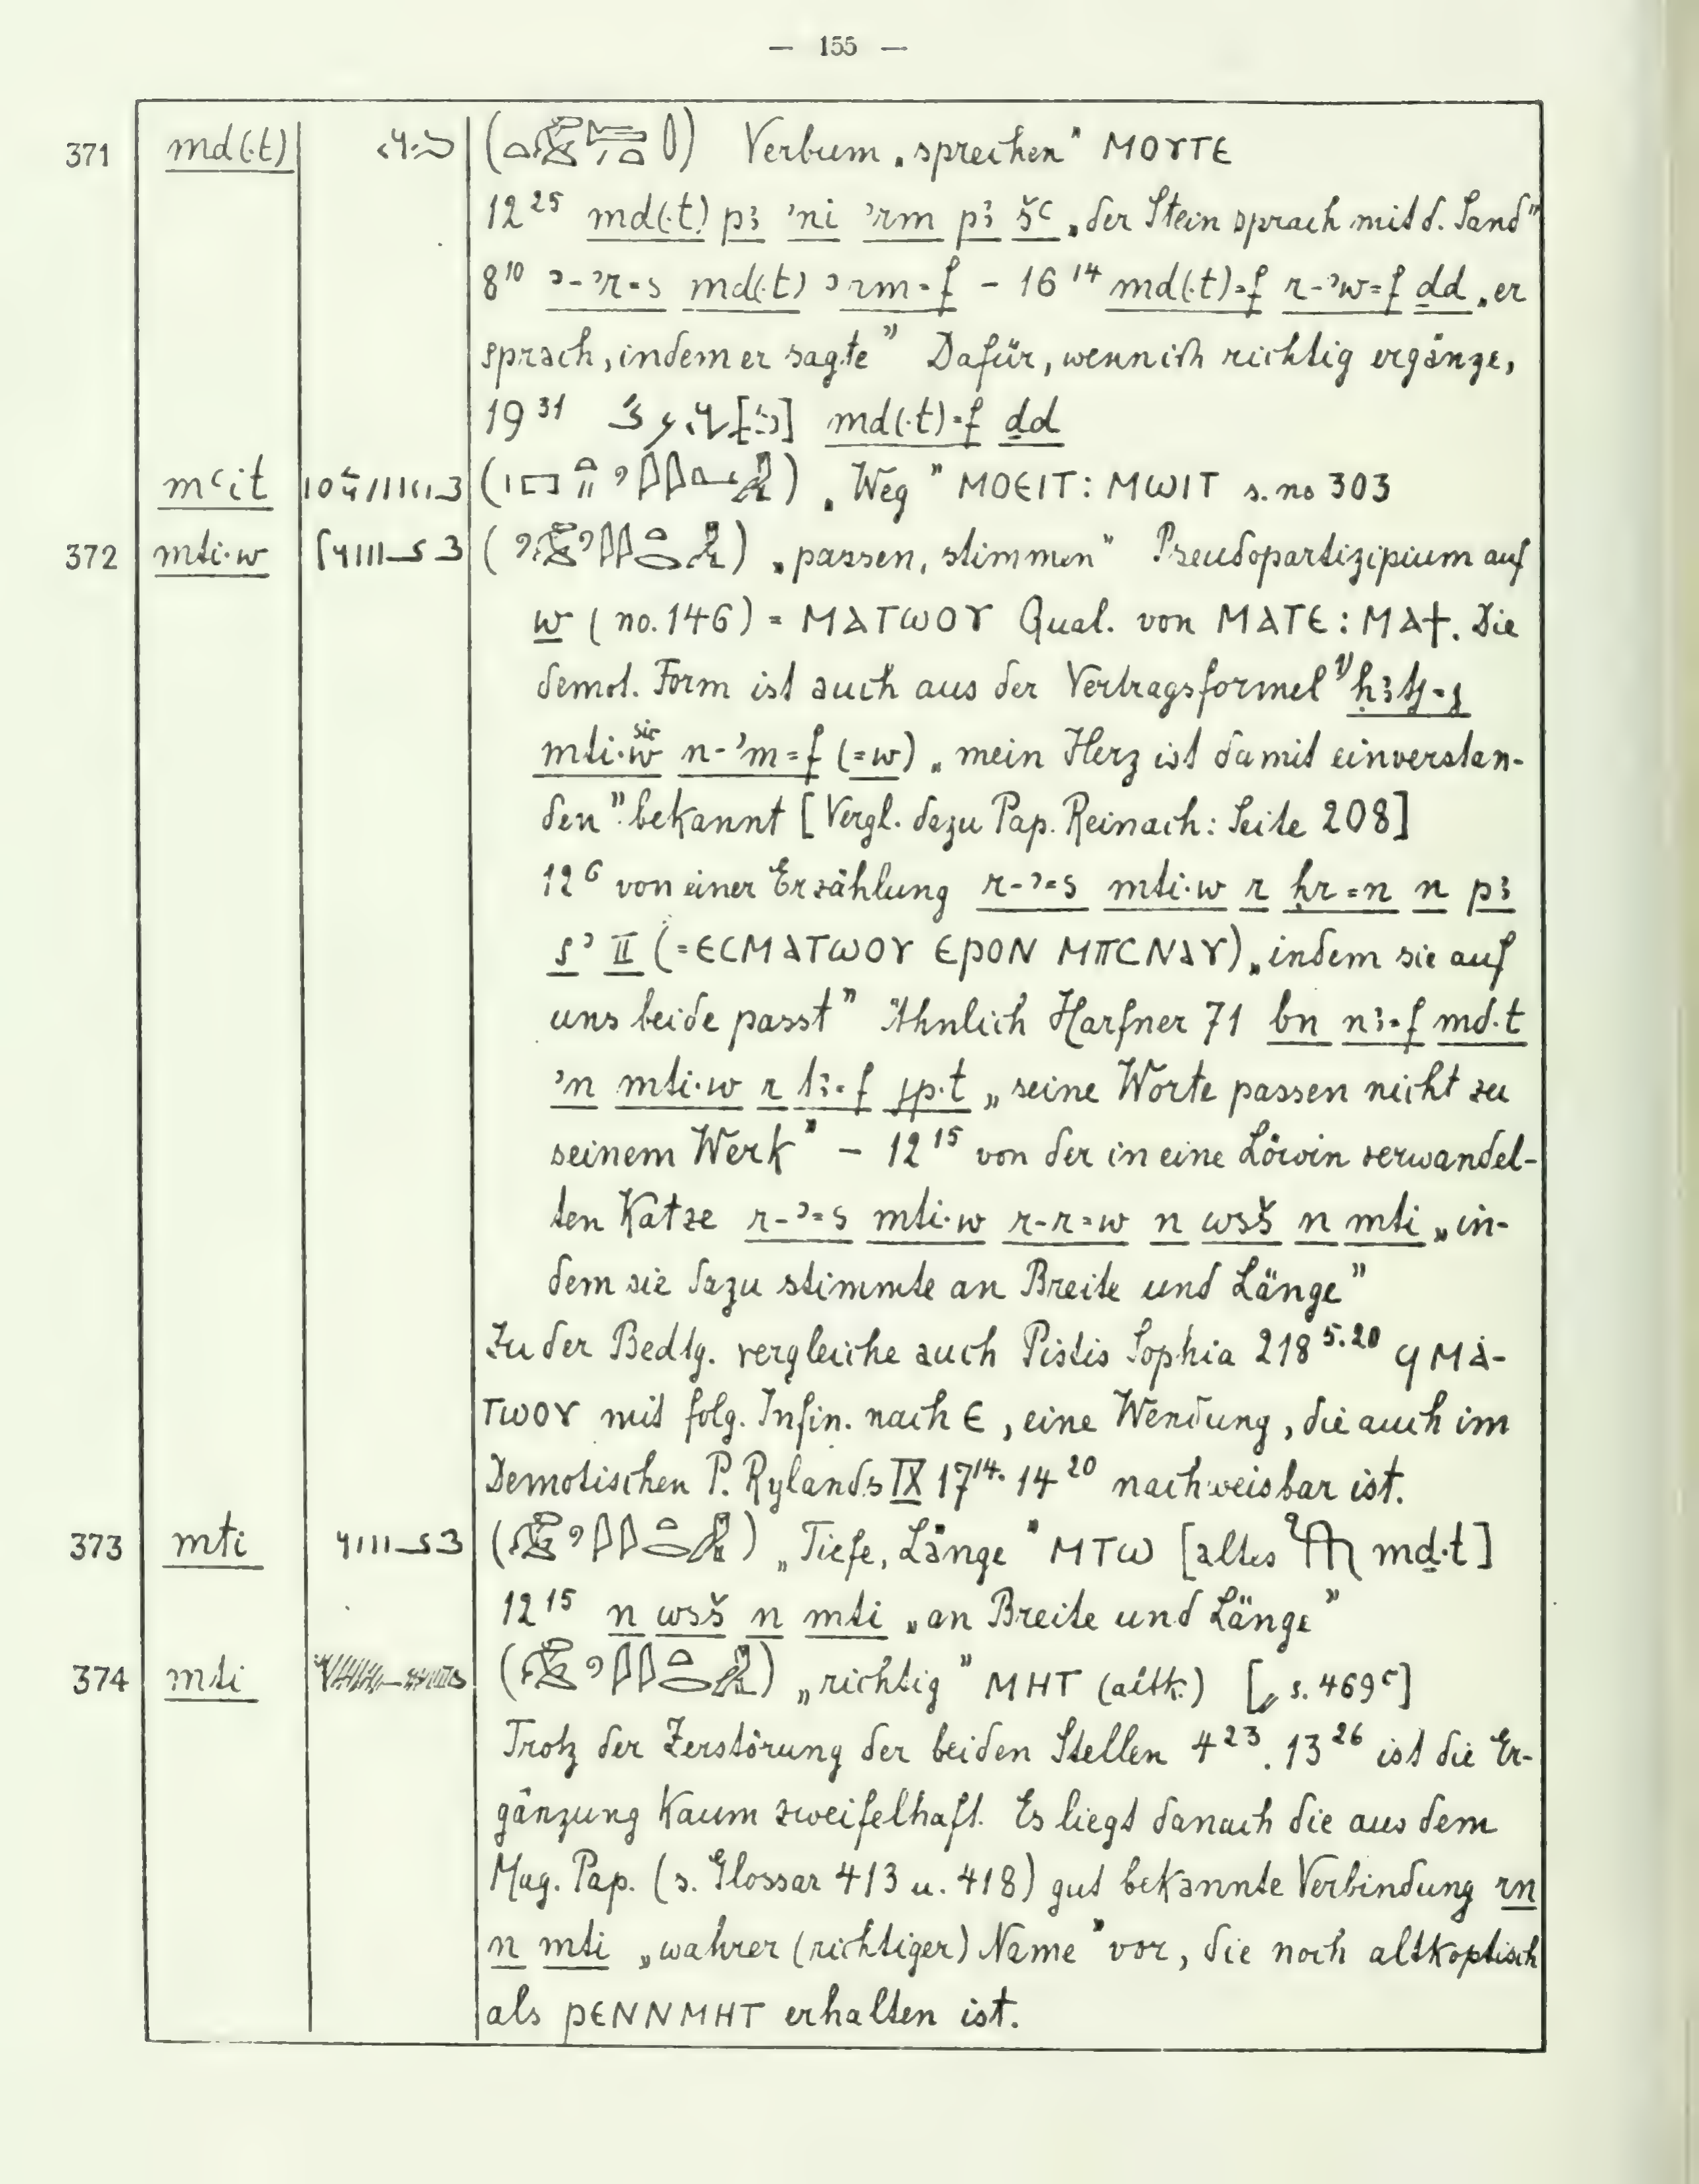 — 155 —
371 md(·t) Verbum „sprechen" ⲘⲞⲨⲦⲈ
12 25 md(·t) pꜣ ’ni ’rm pꜣ šꜥ „der Stein sprach mit d. Sand"
8 10 ’-’r=s md(·t) ’rm=f – 16 14 md(·t)=f r-’w=f ḏd „er
sprach, indem er sagte" Dafür, wenn ich richtig ergänze,
19 31 md(·t)=f ḏd
mꜥit „Weg" ⲘⲞⲈⲒⲦ : ⲘⲰⲒⲦ s. no 303
372 mti·w „passen, stimmen" Pseudopartizipium auf
w (no. 146) = ⲘⲀⲦⲰⲞⲨ Qual. von ⲘⲀⲦⲈ : ⲘⲀϮ. Die
demot. Form ist auch aus der Vertragsformel
mti·w sic n-’m=f (=w) „mein Herz ist damit einverstan-
den" bekannt [Vergl. dazu Pap. Reinach: Seite 208]
12 6 von einer Erzählung r-’=s mti·w r ḥr=n n pꜣ
s’ II (=ⲈⲤⲘⲀⲦⲰⲞⲨ ⲈⲢⲞⲚ ⲘⲠⲤⲚⲀⲨ) „indem sie auf
uns beide passt" Ähnlich Harfner 71 bn nꜣ=f md·t
’n mti·w r tꜣ=f „seine Worte passen nicht zu
seinem Werk" – 12 15 von der in eine Löwin verwandel-
ten Katze r-’=s mti·w r-r=w n wsš n mti „in-
dem sie dazu stimmte an Breite und Länge"
Zu der Bedtg. vergleiche auch Pistis Sophia 218 5.20 ϤⲘⲀ-
ⲦⲰⲞⲨ mit folg. Infin. nach Ⲉ, eine Wendung, die auch im
Demotischen P. Rylands IX 17 14. 14 20 nachweisbar ist.
373 mti „Tiefe, Länge" ⲘⲦⲰ [altes mḏ·t]
12 15 n wsš n mti „an Breite und Länge"
374 mti „richtig" ⲘⲎⲦ (altk.) [s. 469 c]
Trotz der Zerstörung der beiden Stellen 4 23. 13 26 ist die Er-
gänzung kaum zweifelhaft. Es liegt danach die aus dem
Mag. Pap. (s. Glossar 413 u. 418) gut bekannte Verbindung rn
n mti „wahrer (richtiger) Name" vor, die noch altkoptisch
als ⲢⲈⲚⲚⲘⲎⲦ erhalten ist.